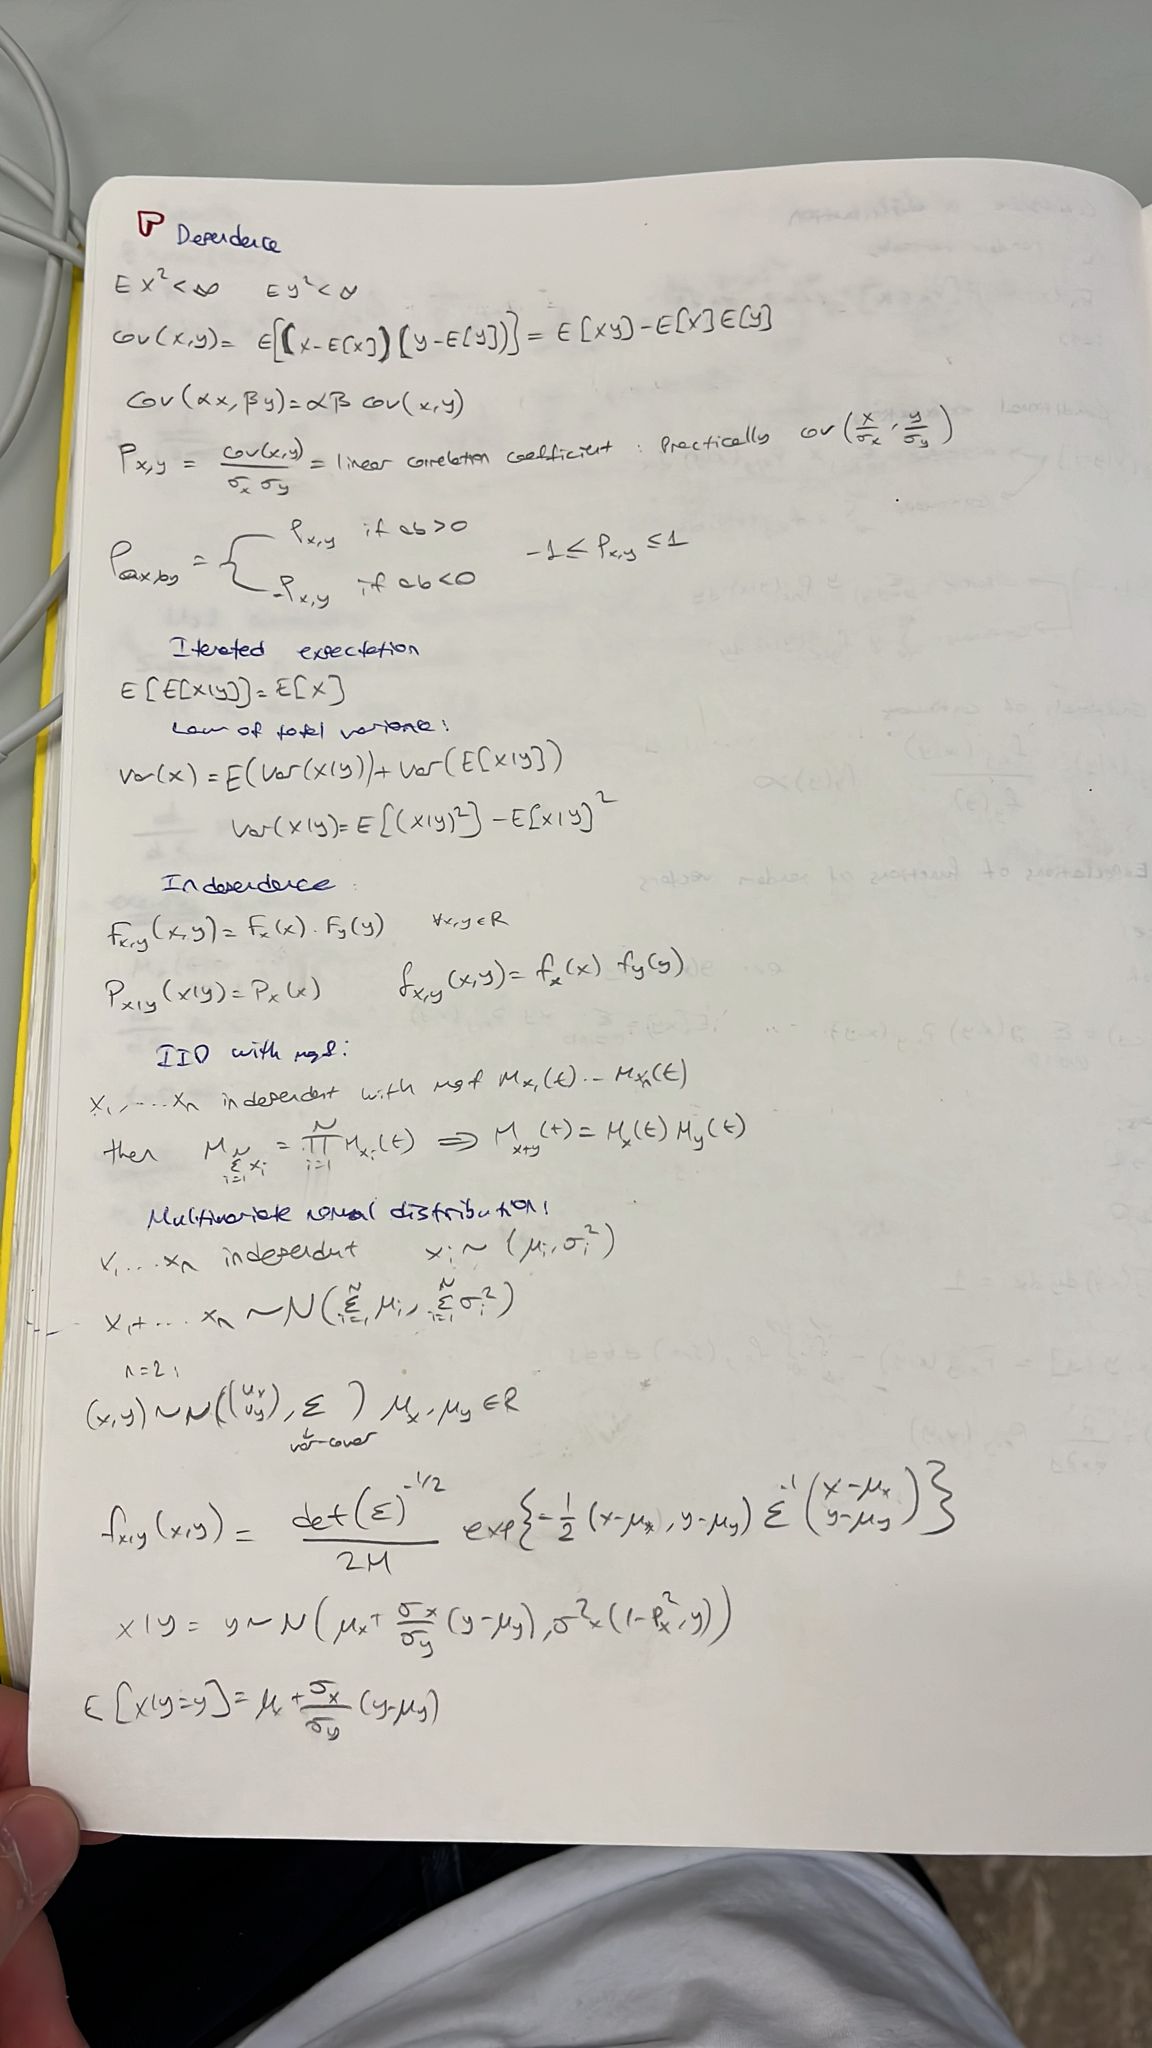 Dependence
E x² < ∞   E y² < ∞
cov(x,y) = E[(x-E[x])(y-E[y])] = E[xy] - E[x]E[y]
Cov(αx, βy) = αβ cov(x,y)
ρx,y = cov(x,y) / σx σy = linear correlation coefficient : Practically cov(x/σx, y/σy)
ρax,by = { ρx,y if ab>0   -1 ≤ ρx,y ≤ 1
-ρx,y if ab<0
Iterated expectation
E[E[x|y]] = E[x]
Law of total variance:
Var(x) = E(Var(x|y)) + Var(E[x|y])
Var(x|y) = E[(x|y)²] - E[x|y]²
Independence
Fx,y(x,y) = Fx(x) . Fy(y)   ∀x,y∈R
Px|y(x|y) = Px(x)   fx,y(x,y) = fx(x) fy(y)
IID with mgf:
x1, .... xn independent with mgf Mx1(t) .. Mxn(t)
then M Σ(i=1,N) xi = Π(i=1,N) Mxi(t) ⇒ Mx+y(t) = Mx(t) My(t)
Multivariate normal distribution:
x1 ... xn independent   xi ~ (μi, σi²)
x1 + ... xn ~ N(Σ(i=1,N) μi, Σ(i=1,N) σi²)
n=2:
(x,y) ~ N((μx μy), Σ ) μx, μy ∈ R
var-covar
fx,y(x,y) = det(Σ)^-1/2 / 2π exp{-1/2 (x-μx, y-μy) Σ^-1 (x-μx y-μy)}
x|y = y ~ N(μx + σx/σy (y-μy), σ²x(1-ρx²,y))
E[x|y=y] = μx + σx/σy (y-μy)